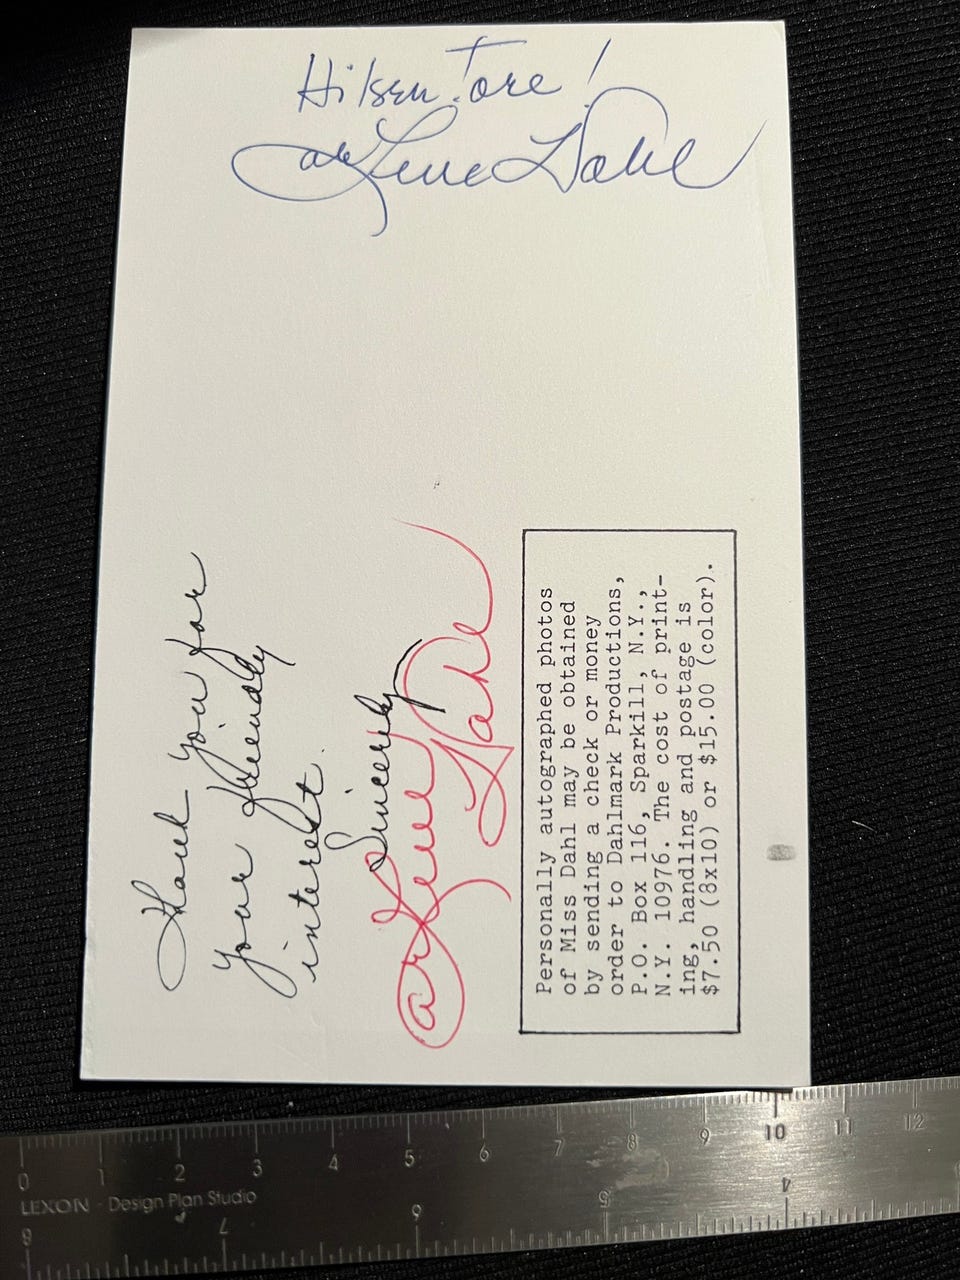 Hilsen Tore!
Arlene Dahl
Thank you for
your friendly
interest.
Sincerely
Arlene
Dahl
Personally autographed photos
of Miss Dahl may be obtained
by sending a check or money
order to Dahlmark Productions,
P.O. Box 116, Sparkill, N.Y.,
N.Y. 10976. The cost of print-
ing, handling and postage is
$7.50 (8x10) or $15.00 (color).
0 1 2 3 4 5 6 7 8 9 10 11 12
LEXON - Design Plan Studio
8 7 6 5 4